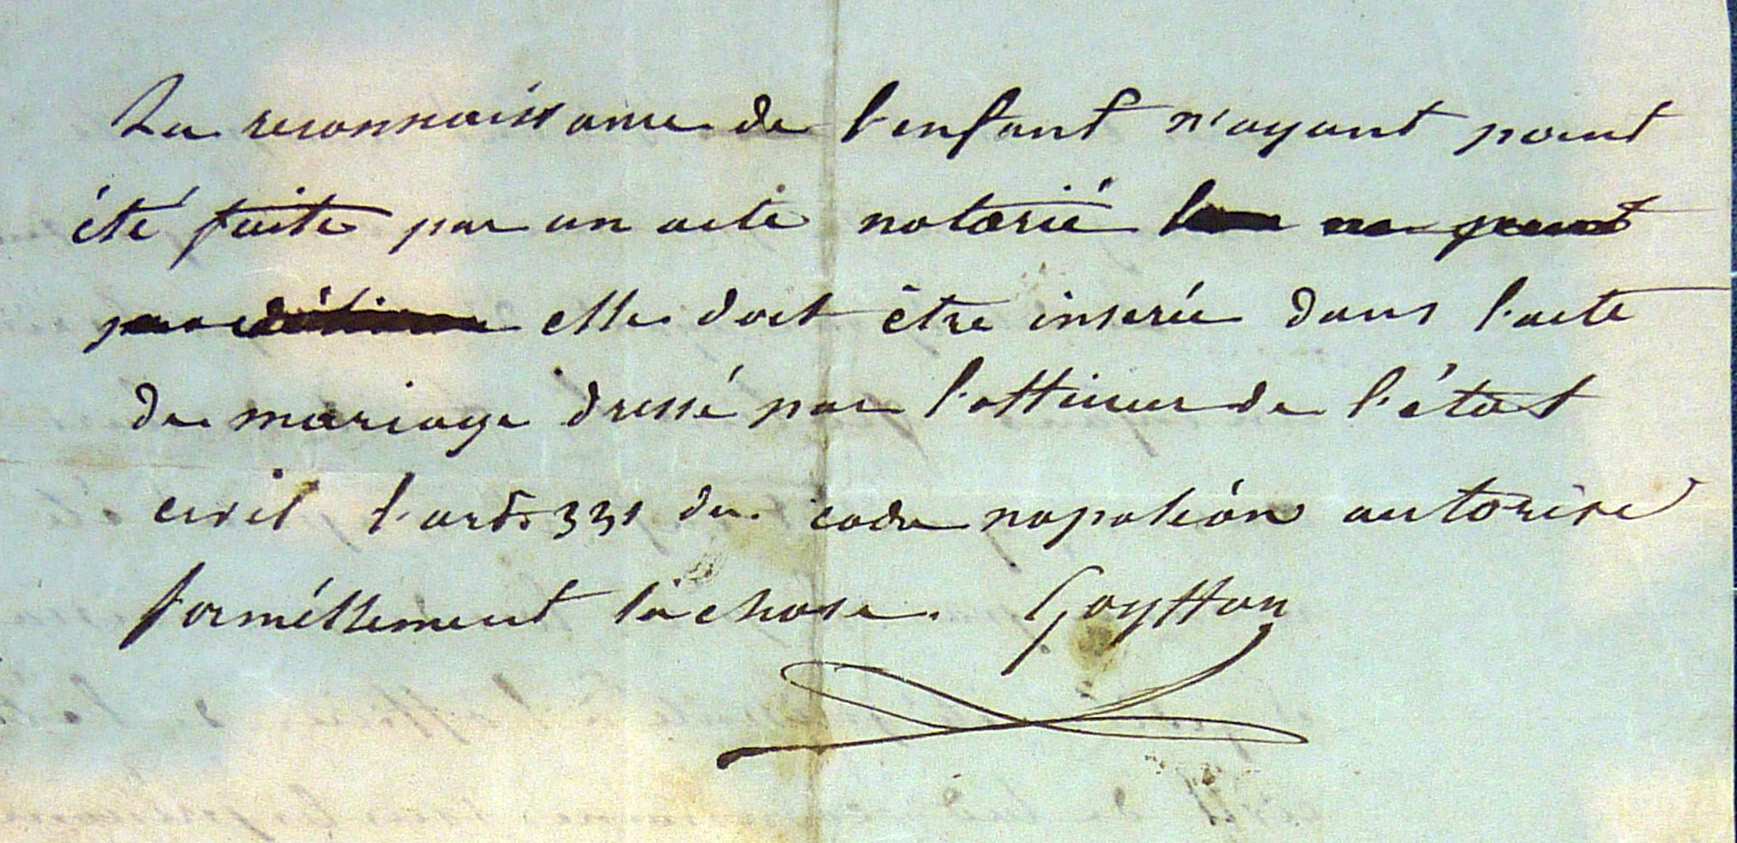 La reconnaissance de l'enfant n'ayant point
été faite par un acte notarié
elle doit être inserée dans l'acte
de mariage dressé par l'officier de l'état
civil l'art. 331 du code napoléon autorise
forméllement la chose. Goyffon